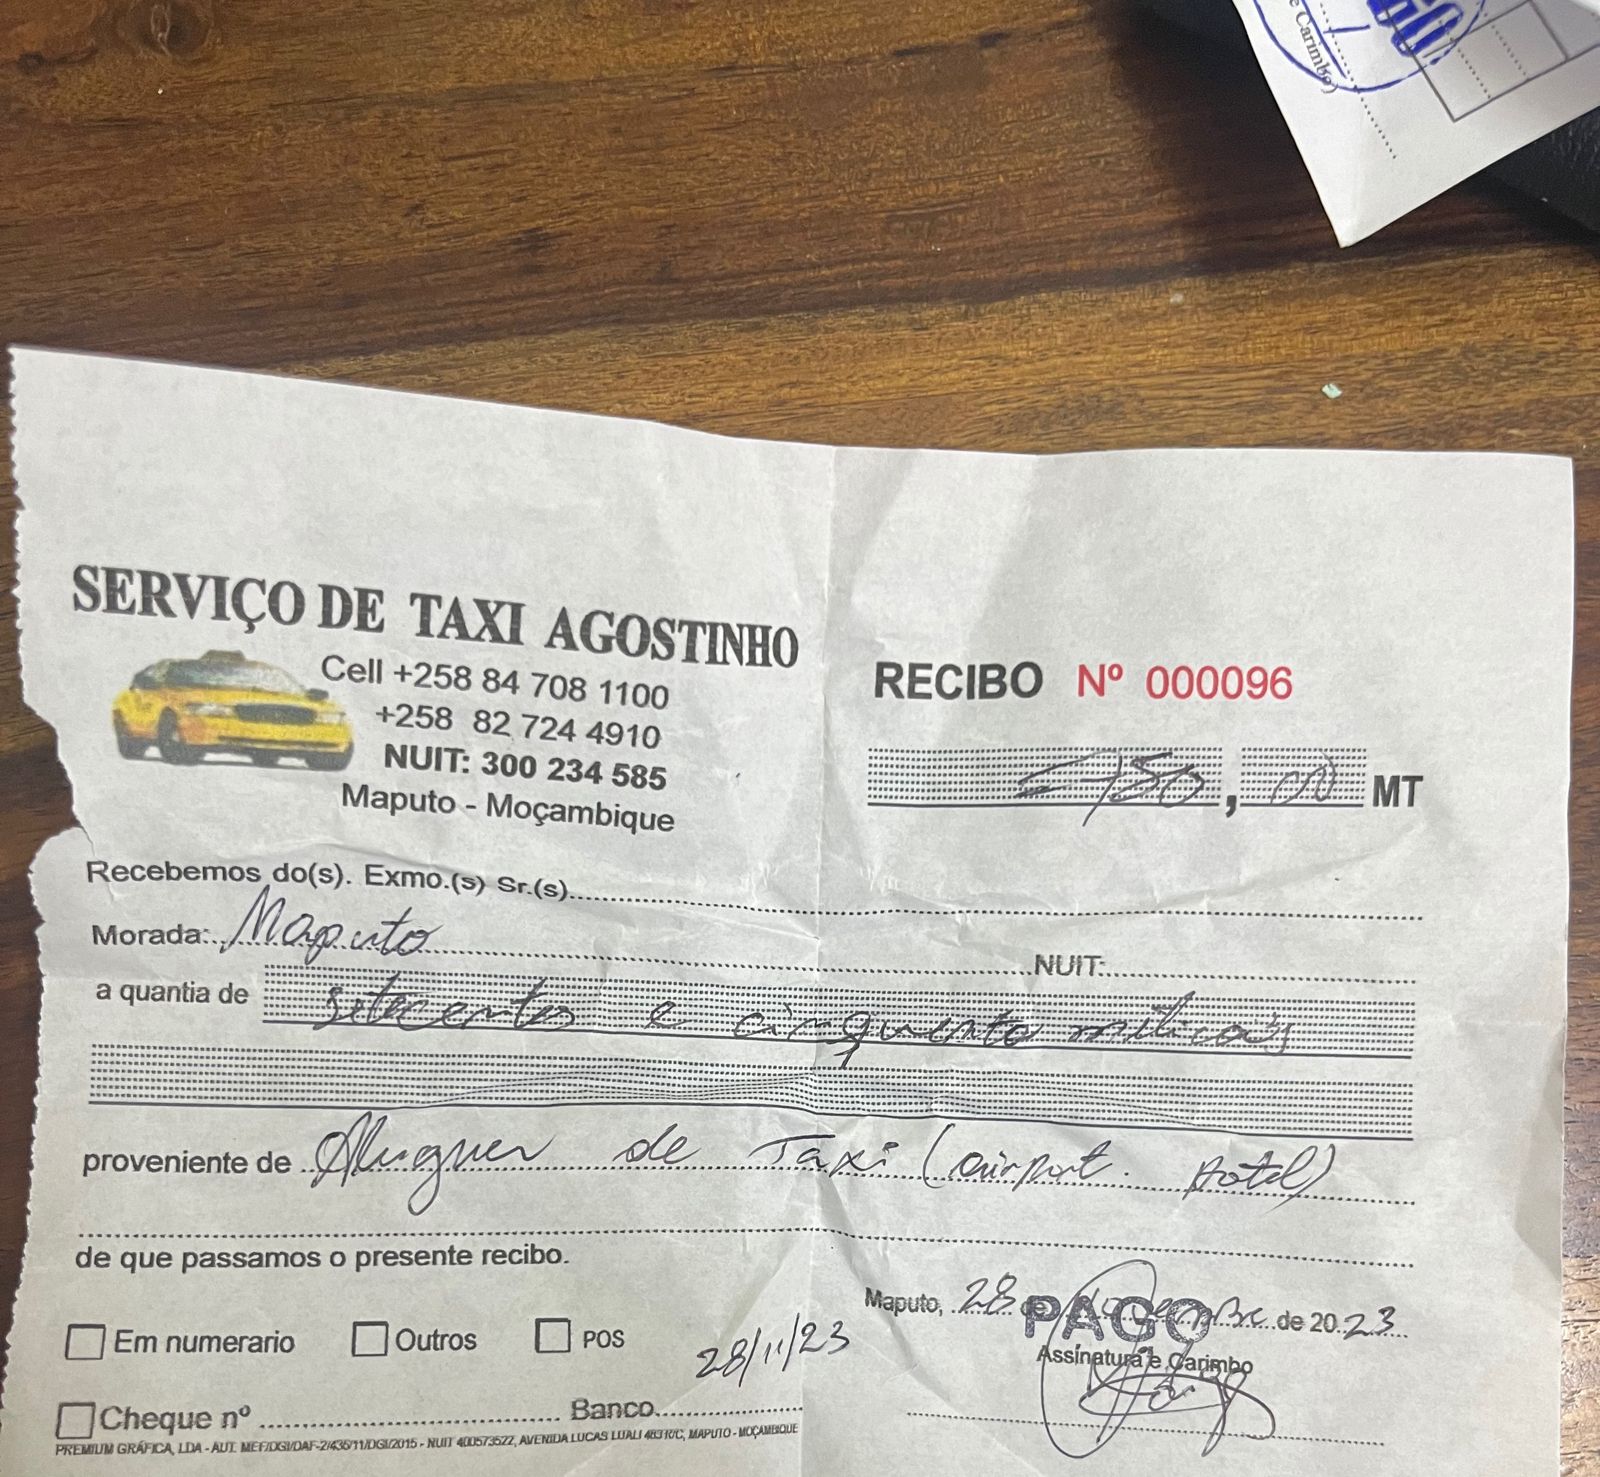 e Carimbo)
SERVIÇO DE TAXI AGOSTINHO
Cell +258 84 708 1100
+258 82 724 4910
NUIT: 300 234 585
Maputo - Moçambique
RECIBO Nº 000096
750,00 MT
Recebemos do(s). Exmo.(s) Sr.(s)
Morada: Maputo NUIT:
a quantia de setecentos e cinquenta meticais
proveniente de Aluguer de Taxi (airport. Hotel)
de que passamos o presente recibo.
Maputo, 28 de Novembro de 2023
PAGO
Assinatura e Carimbo
Em numerario Outros POS
28/11/23
Cheque nº Banco
PREMIUM GRÁFICA, LDA - AUT. MEF/DGI/DAF-2/435/11/DGI/2015 - NUIT 400573522, AVENIDA LUCAS LUALI 483 R/C, MAPUTO - MOÇAMBIQUE